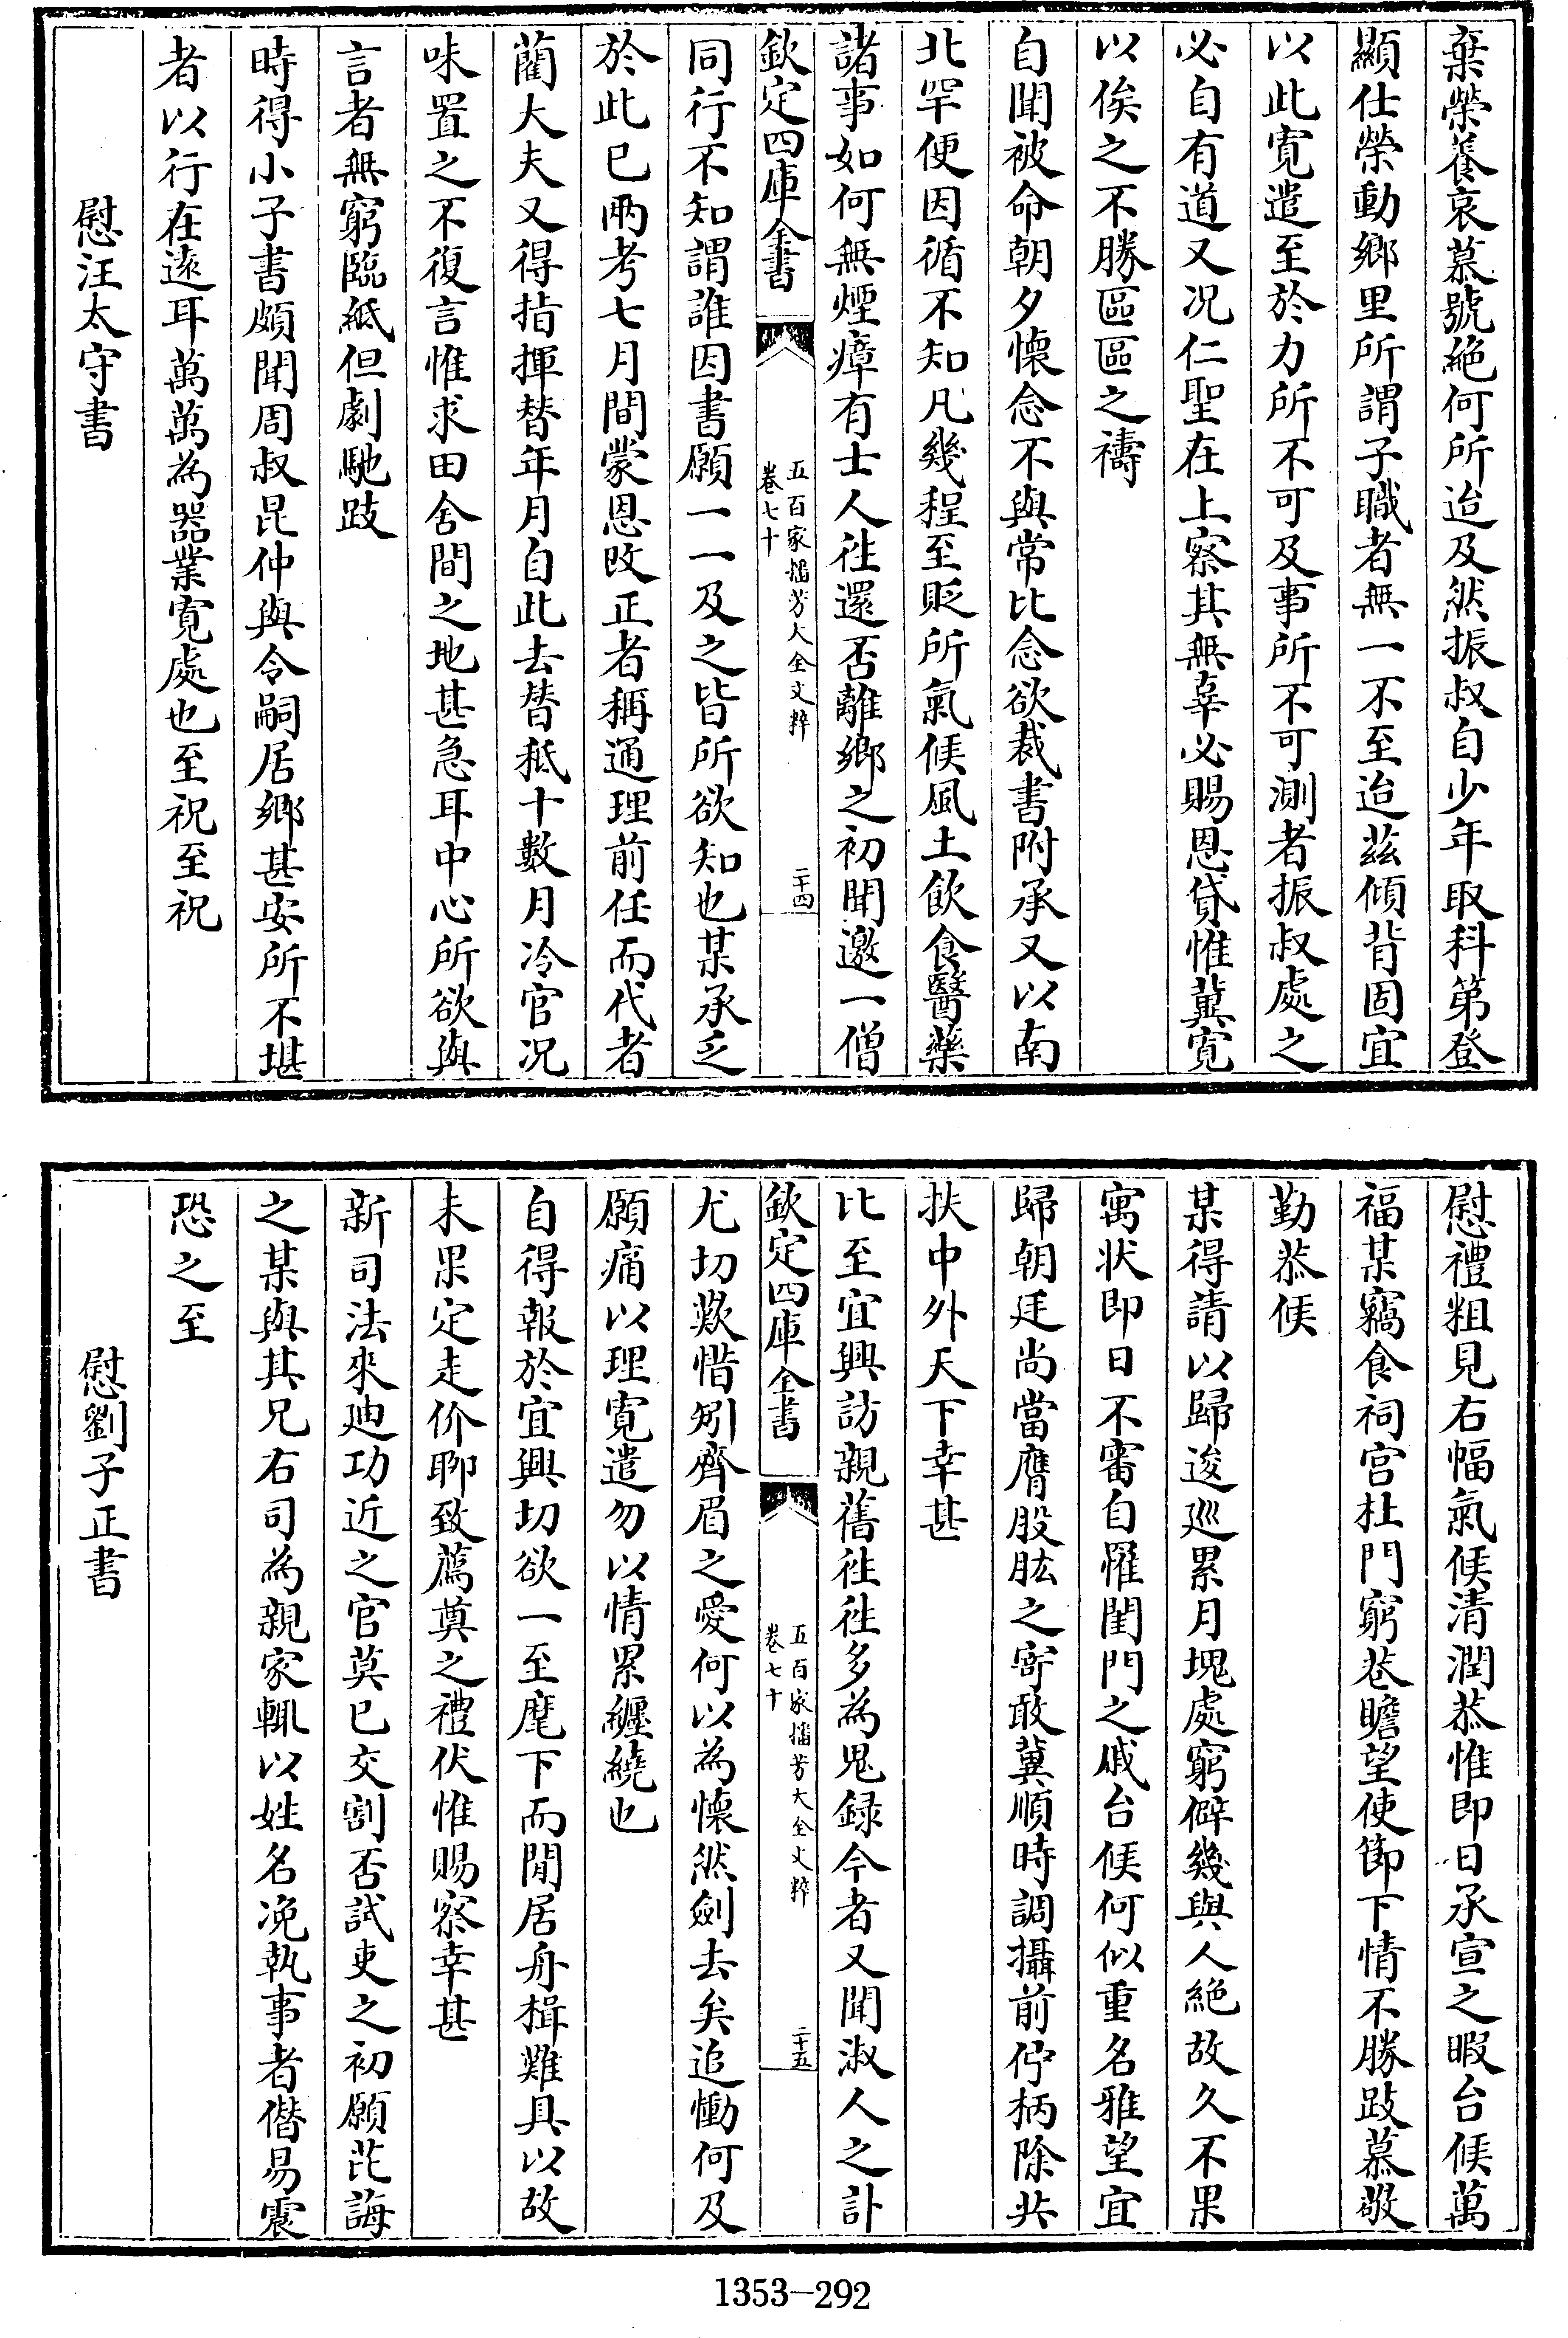 棄榮養哀慕號絶何所迨及然振叔自少年取科第登
顯仕榮動鄉里所謂子職者無一不至迨茲傾背固宜
以此寛遣至於力所不可及事所不可測者振叔處之
必自有道又况仁聖在上察其無辜必賜恩貸惟冀寛
以俟之不勝區區之禱
自聞被命朝夕懷念不與常比念欲裁書附承又以南
北罕便因循不知凡幾程至貶所氣候風土飲食醫藥
諸事如何無煙瘴有士人往還否離鄉之初聞邀一僧
欽定四庫全書
五百家播芳大全文粹
卷七十
二十四
同行不知謂誰因書願一一及之皆所欲知也某承乏
於此已兩考七月間蒙恩改正者稱通理前任而代者
藺大夫又得指揮替年月自此去替秪十數月冷官况
味置之不復言惟求田舍間之地甚急耳中心所欲與
言者無窮臨紙但劇馳跂
時得小子書頗聞周叔昆仲與令嗣居鄉甚安所不堪
者以行在遠耳萬萬為器業寛處也至祝至祝
慰汪太守書
慰禮粗見右幅氣候清潤恭惟即日承宣之暇台候萬
福某竊食祠宫杜門窮巷瞻望使節下情不勝跂慕敬
勤恭候
某得請以歸逡廵累月塊處窮僻幾與人絶故久不果
寓狀即日不審自罹閨門之戚台候何似重名雅望宜
歸朝廷尚當膺股肱之寄敢冀順時調攝前佇柄除共
扶中外天下幸甚
比至宜興訪親舊往往多為鬼録今者又聞淑人之訃
欽定四庫全書
五百家播芳大全文粹
卷七十
二十五
尤切歎惜矧齊眉之愛何以為懷然劍去矣追慟何及
願痛以理寛遣勿以情累纒繞也
自得報於宜興切欲一至麾下而閒居舟楫難具以故
未果定走价聊致薦奠之禮伏惟賜察幸甚
新司法來廸功近之官莫已交割否試吏之初願芘誨
之某與其兄右司為親家輒以姓名凂執事者僭易震
恐之至
慰劉子正書
1353—292